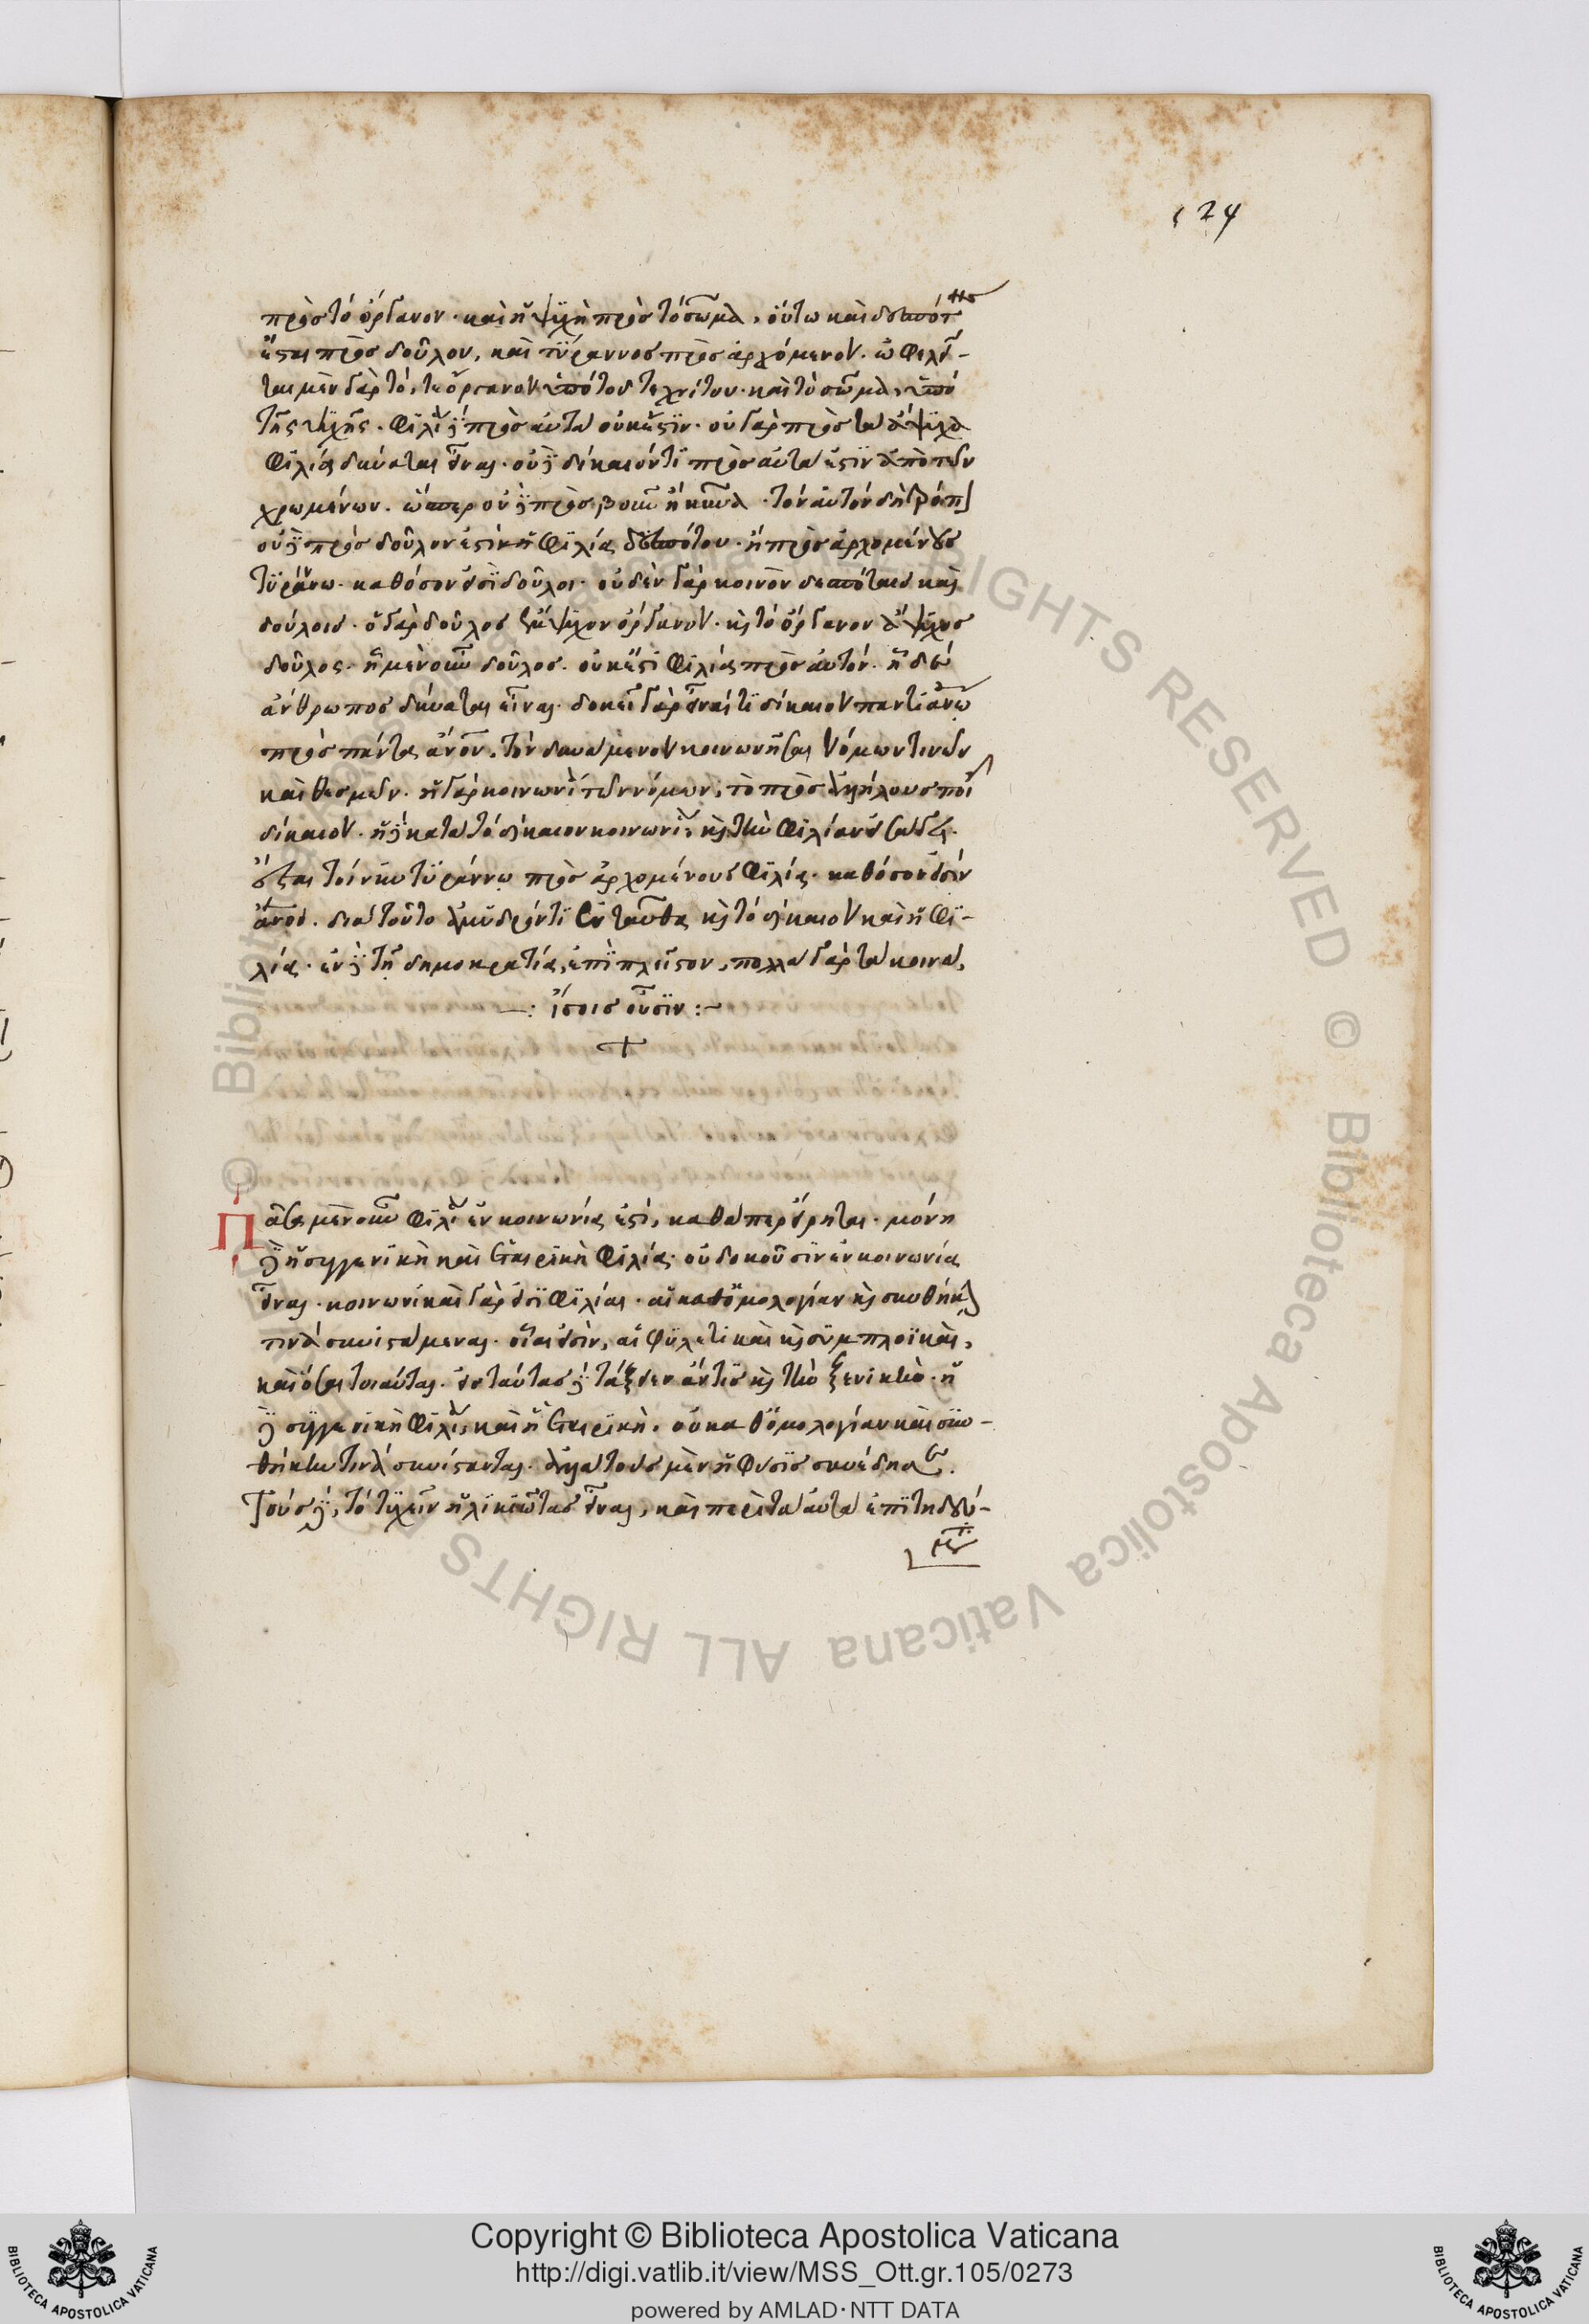 124
πρὸς τὸ ὄργανον· καὶ ἡ ψυχὴ πρὸς τὸ σῶμα, οὕτω καὶ δεσπότης
ἔχει πρὸς δοῦλον, καὶ τύραννος πρὸς ἀρχόμενον. ὠφελεῖ-
ται μὲν γὰρ τό, τε ὄργανον ὑπὸ τοῦ τεχνίτου· καὶ τὸ σῶμα, ὑπὸ
τῆς ψυχῆς. φιλία δὲ πρὸς αὐτὰ οὐκ ἔστιν· οὐ γὰρ πρὸς τὰ ἄψυχα
φιλία δύναται εἶναι· οὐδὲ δίκαιόν τι πρὸς αὐτά ἐστιν ἀπὸ τῶν
χρωμένων. ὥσπερ οὐδὲ πρὸς βοῦν ἢ κύνα· τὸν αὐτὸν δὴ τρόπον
οὐδὲ πρὸς δοῦλόν ἐστιν ἡ φιλία δεσπότου· ἢ πρὸς ἀρχομένους
τυράννω· καθόσον εἰσὶ δοῦλοι· οὐδὲν γὰρ κοινὸν δεσπόταις καὶ
δούλοις· ὁ γὰρ δοῦλος ἔμψυχον ὄργανον· καὶ τὸ ὄργανον ἄψυχος
δοῦλος. ᾗ μὲν οὖν δοῦλος· οὐκ ἔστι φιλία πρὸς αὐτόν. ᾗ δὲ
ἄνθρωπος δύναται εἶναι· δοκεῖ γὰρ εἶναί τι δίκαιον παντὶ ἀνῶ
πρὸς πάντα ἀνον, τὸν δυνάμενον κοινωνῆσαι νόμων τινῶν
καὶ θεσμῶν. ἡ γὰρ κοινωνία τῶν νόμων, τὸ πρὸς ἀλλήλους ποιεῖ
δίκαιον· ἡ δὲ κατὰ τὸ δίκαιον κοινωνία, καὶ τὴν φιλίαν
ἔσται τοίνυν τυράννῳ πρὸς ἀρχομένους φιλία· καθόσον εἰσὶν
ἄνοι. διὰ τοῦτο ἀμυδρόν τι ἐνταῦθα καὶ τὸ δίκαιον καὶ ἡ φι-
λία· ἐν δὲ τῇ δημοκρατίᾳ, ἐπὶ πλεῖστον, πολλὰ γὰρ τὰ κοινά,
—: ἴσοις οὖσιν :~
+
Πᾶσα μὲν οὖν φιλία ἐν κοινωνίᾳ ἐστί, καθάπερ εἴρηται· μόνη
δὲ ἡ συγγενικὴ καὶ ἑταιρικὴ φιλία· οὐ δοκοῦσιν ἐν κοινωνίᾳ
εἶναι· κοινωνικαὶ γάρ εἰσι φιλίαι· αἱ καθ' ὁμολογίαν καὶ συνθήκην
τινὰ συνιστάμεναι· οἷαί εἰσιν, αἱ φυλετικαὶ καὶ συμπλοϊκαί,
καὶ ὅσαι τοιαῦται. εἰς ταύτας δὲ τάξειεν ἄν τις καὶ τὴν ξενικήν· ἡ
δὲ συγγενικὴ φιλία, καὶ ἡ ἑταιρική, οὐ καθ' ὁμολογίαν καὶ συν-
θήκην τινὰ συνίστανται. ἀλλὰ τοὺς μὲν ἡ φύσις συνέδησε.
τοὺς δέ, τὸ τυχεῖν ἡλικιώτας εἶναι, καὶ περὶ τὰ αὐτὰ ἐπιτηδεύ-
Copyright © Biblioteca Apostolica Vaticana
http://digi.vatlib.it/view/MSS_Ott.gr.105/0273
powered by AMLAD·NTT DATA
BIBLIOTECA APOSTOLICA VATICANA
BIBLIOTECA APOSTOLICA VATICANA
© Biblioteca Apostolica Vaticana ALL RIGHTS RESERVED
© Biblioteca Apostolica Vaticana ALL RIGHTS RESERVED